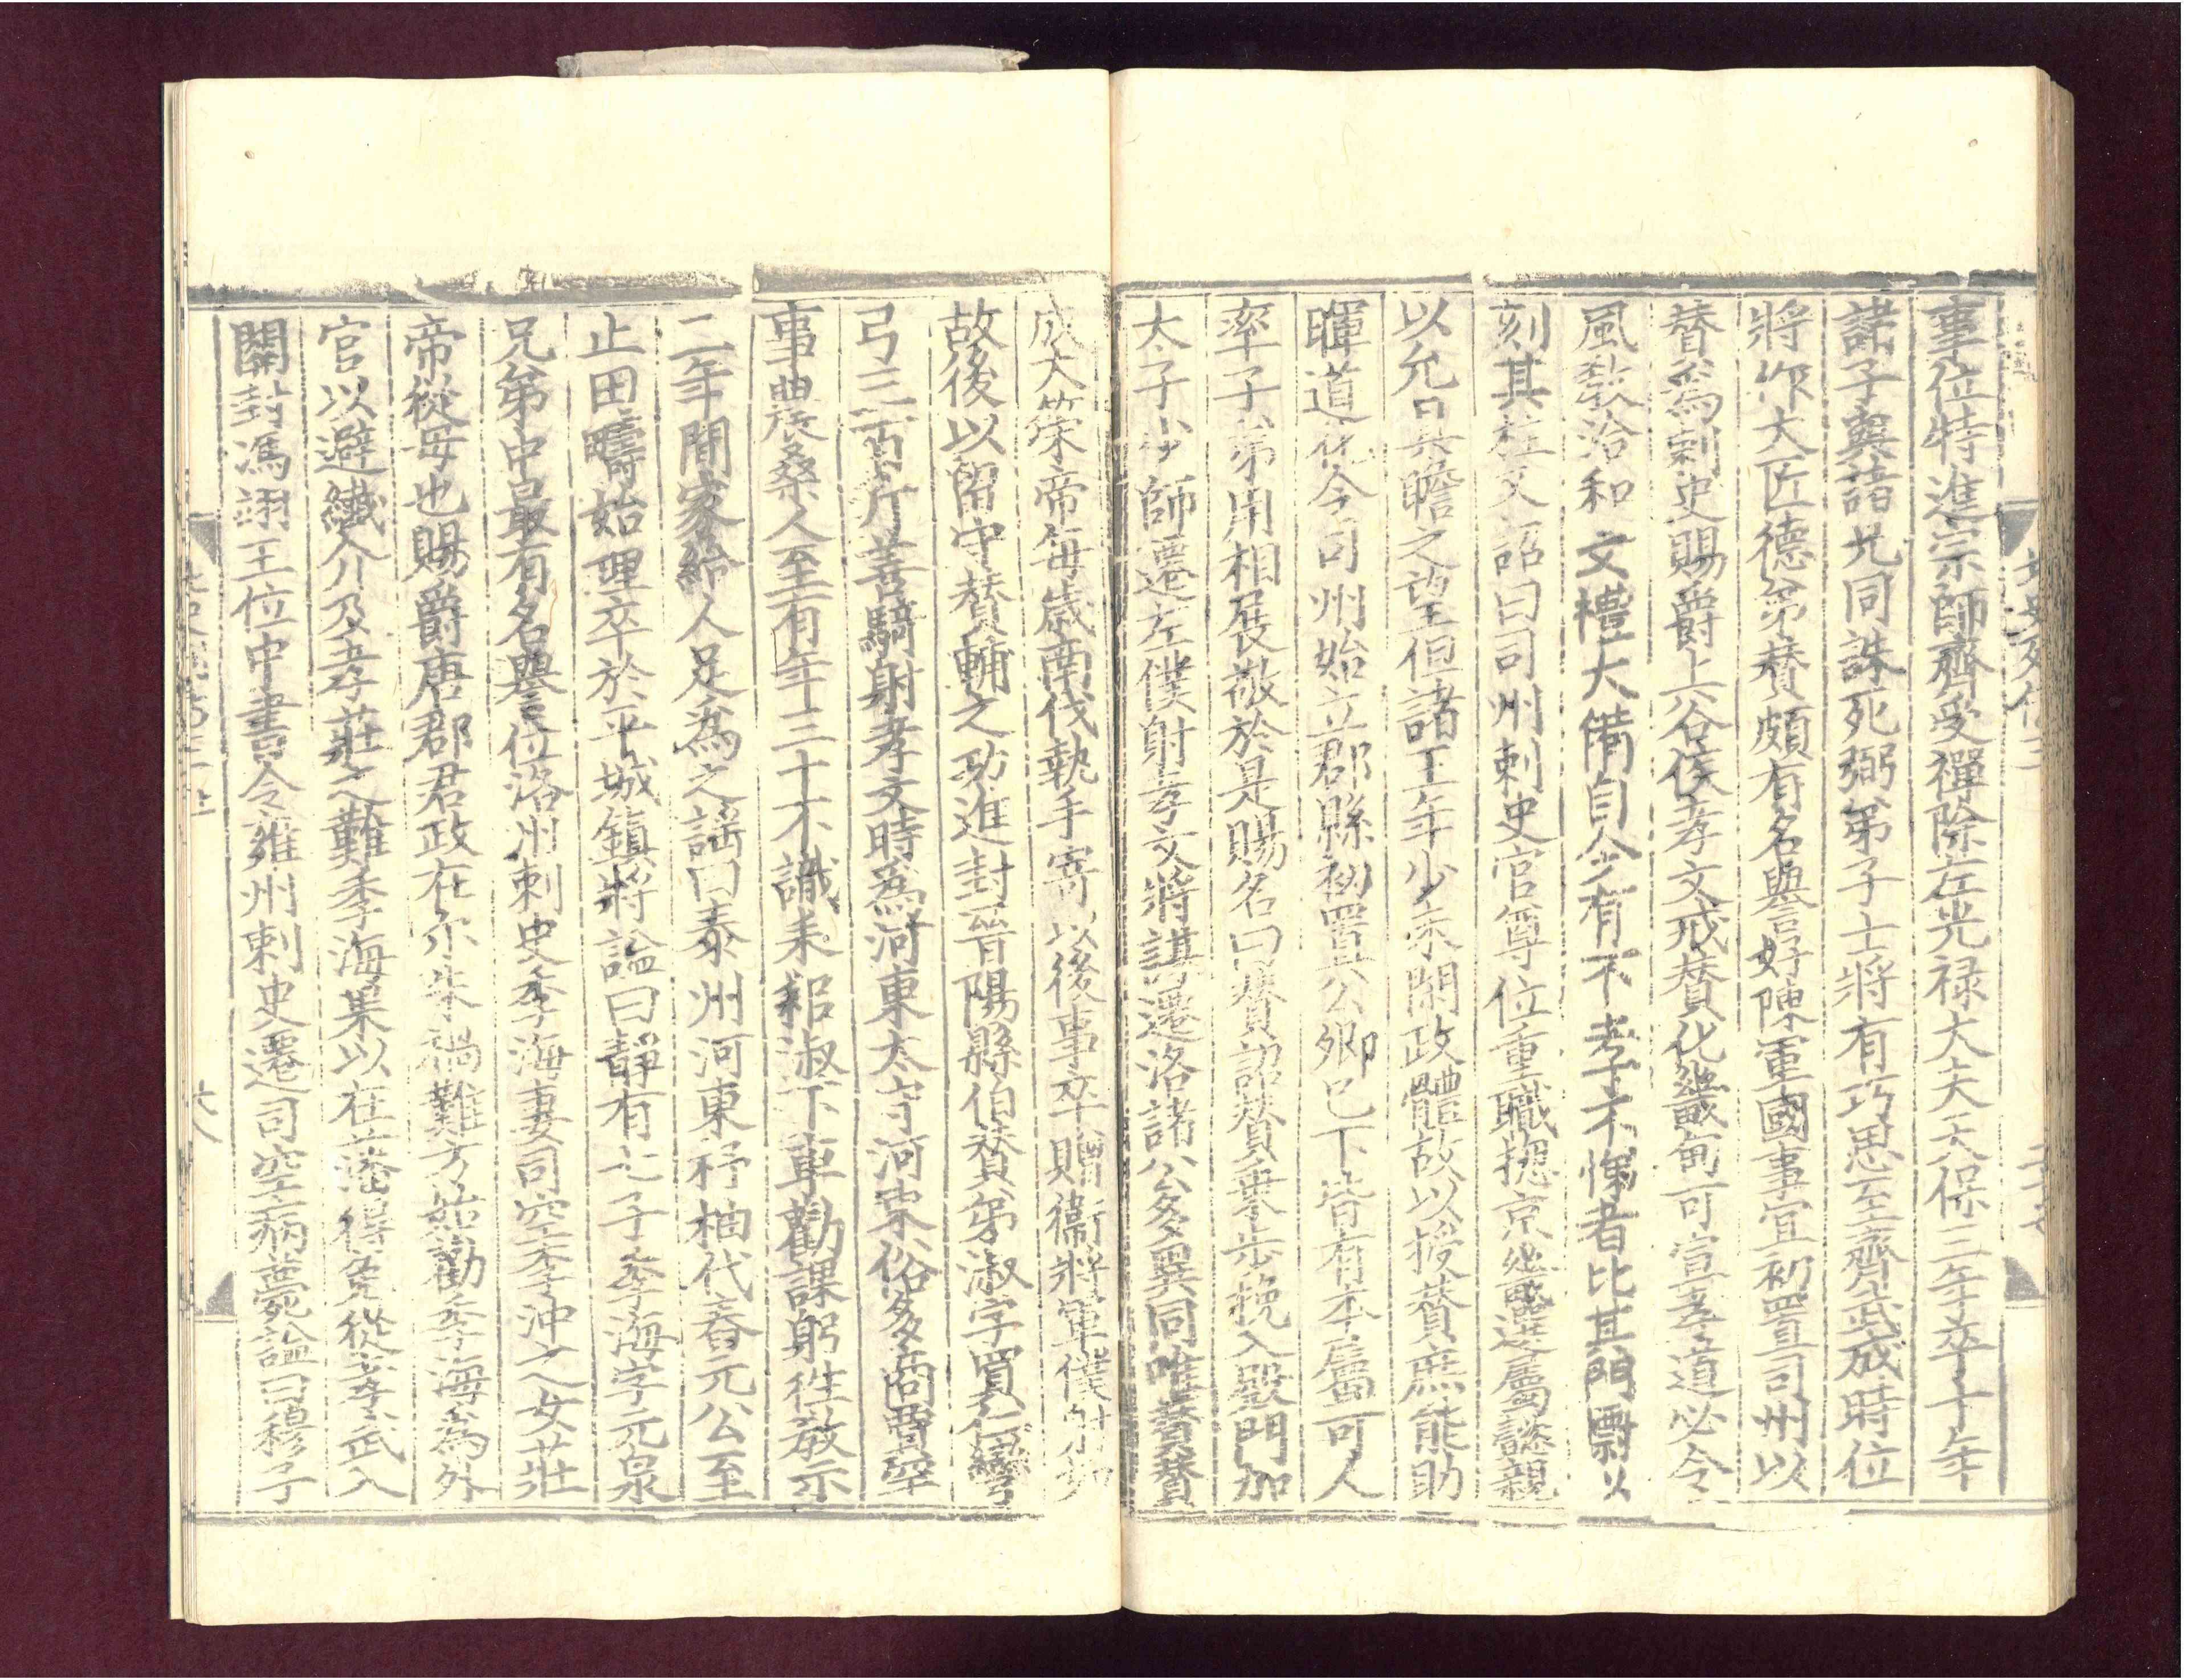 事位特進宗師齊受禪除左光禄大夫天保三年卒十年
諸子與諸元同誅死弼弟子士將有巧思至齊武成時位
將作大匠德弟贊頗有名譽好陳軍國事宜初置司州以
替爲剌史賜爵上谷侯孝文戒贊化畿甸可宣孝道必令
風教洽和文禮大備自今有不孝不悌者比其門𢷾以
刻其柱又詔曰司州剌史官尊位重職揔京畿選屬懿親
以允具瞻之望但諸王年少未閑政體故以授贊庶能助
暉道化今司州始立郡縣初置公卿已下皆有本屬可人
率子弟用相展敬於是賜名曰贊詔贊乗步挽入殿門加
太子少師遷左僕射孝文將謀遷洛諸公多異同唯贊贊
成大策帝每歲南伐執手寄以後事卒贈衞將軍僕射如
故後以留守贊輔之功進封晉陽縣伯贊弟淑字買仁彎
弓三百斤善騎射孝文時爲河東太守河東俗多商賈罕
事農桑人至有年三十不識耒耜淑下車勸課躬往教示
二年間家給人足爲之謡曰泰州河東杼柚代舂元公至
止田疇始理卒於平城鎮將謚曰靜有七子季海字元泉
兄弟中最有名譽位洛州剌史季海妻司空李沖之女莊
帝從母也賜爵唐郡君政在尒朱禍難方始勸季海爲外
官以避纎介及孝莊之難季海果以在藩得免從孝武入
關封馮翊王位中書令雍州剌史遷司空病薨謚曰穆子